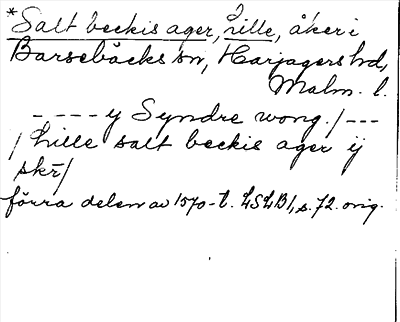 *Salt beckis ager, Lille, åker i
Barsebäcks sn, Harjagers hd,
Malm. l.
- - - - y Syndre wong. / - - -
/ Lille salt beckis ager ij
skr̄ /
förra delen av 1570-t. LSLB 1, s. 72. orig.